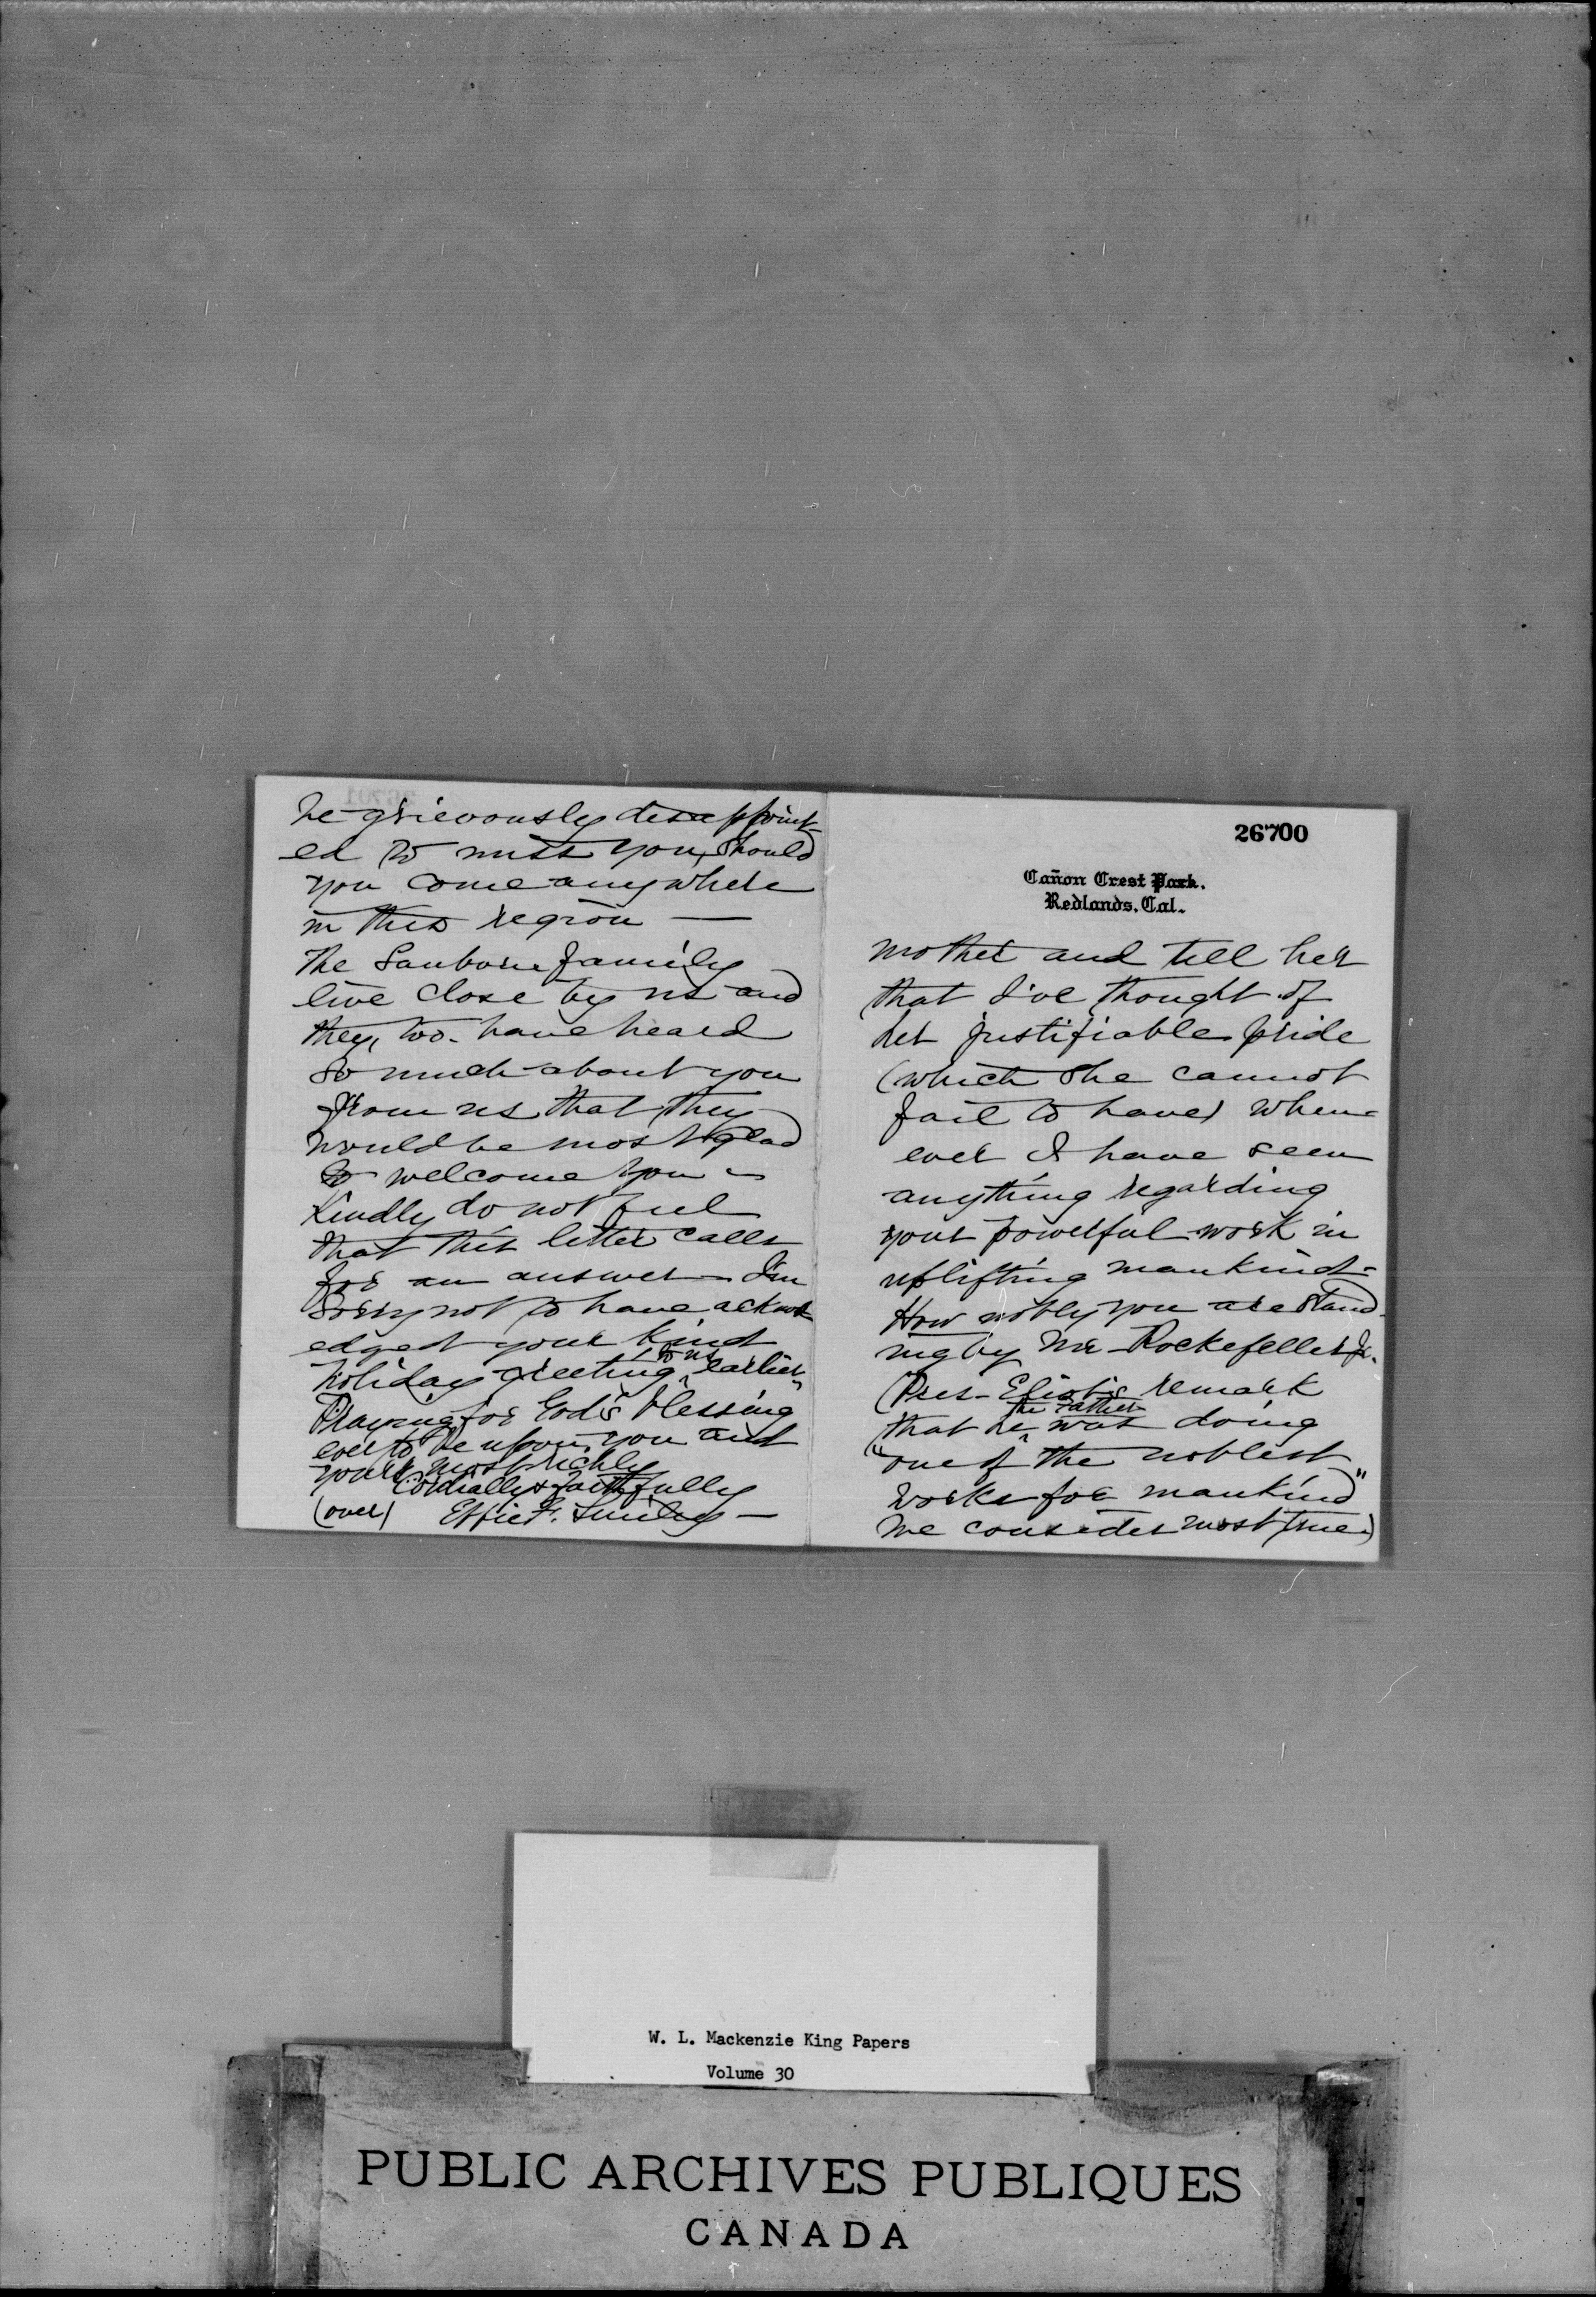 be grievously disappoint-
ed to miss you, should
you come anywhere
in this region —
The Sanborn family
live close by us and
they, too, have heard
so much about you
from us that they
would be most glad
to welcome you –
Kindly do not feel
that this letter calls
for an answer – I'm
sorry not to have acknowl-
edged your kind
holiday greeting to us earlier –
Praying for God's blessing
ever to be upon you and
yours most richly
Cordially & faithfully
(over) Effie F. Smiley —
26700
Cañon Crest Park.
Redlands, Cal.
mother and tell her
that I've thought of
her justifiable pride
(which she cannot
fail to have) when-
ever I have seen
anything regarding
your powerful work in
uplifting mankind –
How nobly you are stand-
ing by Mr Rockefeller Jr.
(Pres – Eliot's remark
that he, the father was doing
"one of the noblest
works for mankind"
we consider most true.)
W. L. Mackenzie King Papers
Volume 30
PUBLIC ARCHIVES PUBLIQUES
CANADA